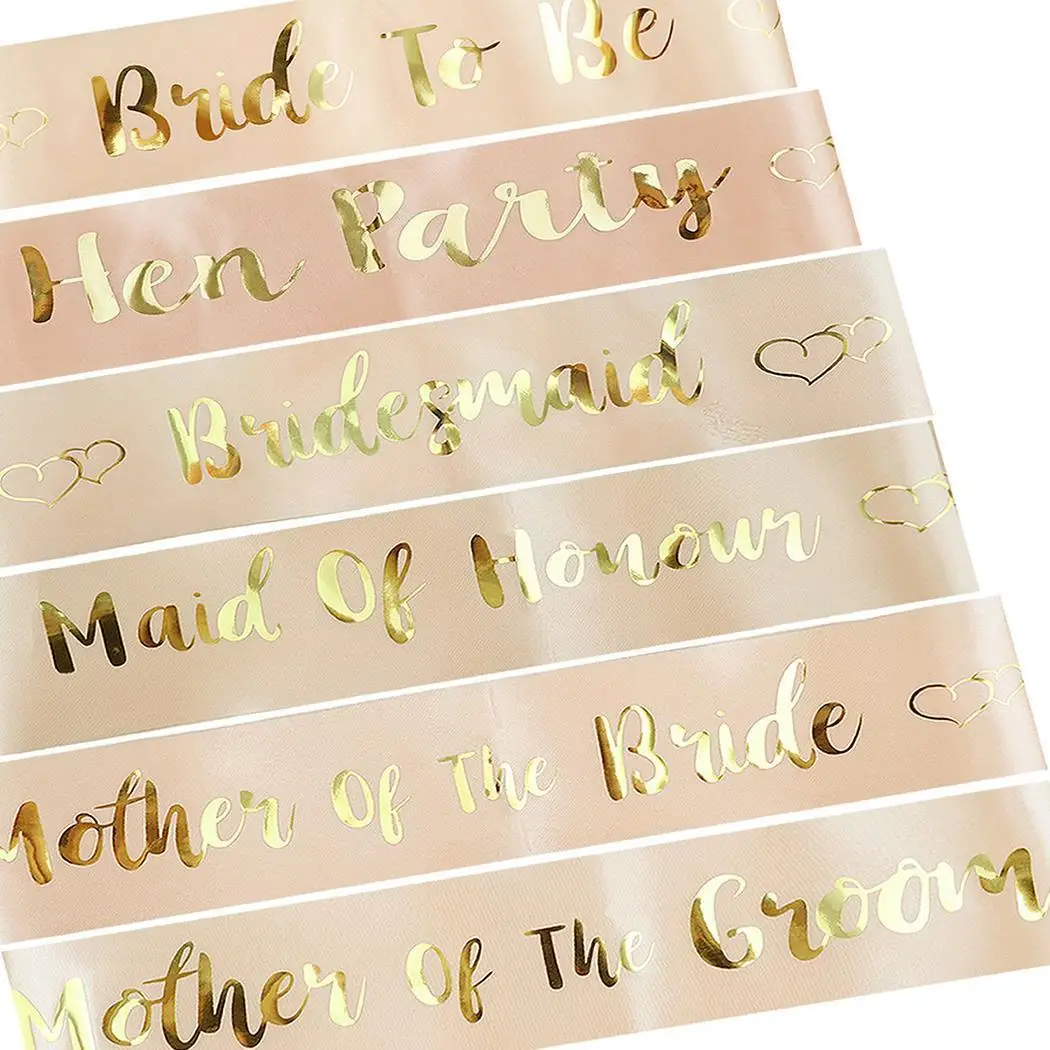 Bride To Be
Hen Party
Bridesmaid
Maid Of Honour
Mother Of The Bride
Mother Of The Groom